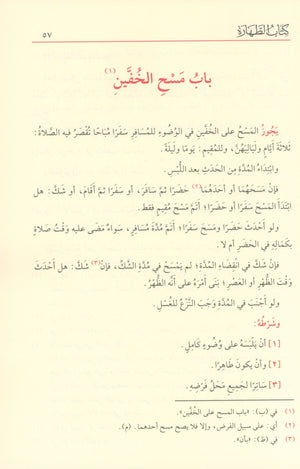 كتاب الطهارة
٥٧
باب مسح الخفين(١)
يجوز المسح على الخفين في الوضوء للمسافر سفرًا مباحًا تُقصر فيه الصلاة:
ثلاثة أيام ولياليهن، وللمقيم: يومًا وليلة.
وابتداء المدة من الحدث بعد اللبس.
فإن مسحهما أو أحدهما(٢) حضرًا ثم سافر، أو سفرًا ثم أقام، أو شك: هل
ابتدأ المسح سفرًا أو حضرًا؛ أتم مسح مقيم فقط.
ولو أحدث حضرًا ومسح سفرًا؛ أتم مدة مسافر، سواء مضى عليه وقت صلاة
بكماله في الحضر أم لا.
فإن شك في انقضاء المدة؛ لم يمسح في مدة الشك، فإن(٣) شك: هل أحدث
وقت الظهر أو العصر؛ بنى أمره على أنه الظهر.
ولو أجنب في المدة وجب النزع للغسل.
وشرطه:
[١] أن يلبسه على وضوء كامل.
[٢] وأن يكون طاهرًا.
[٣] ساترًا لجميع محل فرضه.
(١) في (ب): «باب المسح على الخفين».
(٢) أي: على سبيل الفرض، وإلا فلا يصح مسح أحدهما. (م).
(٣) في (ظ): «بأن».